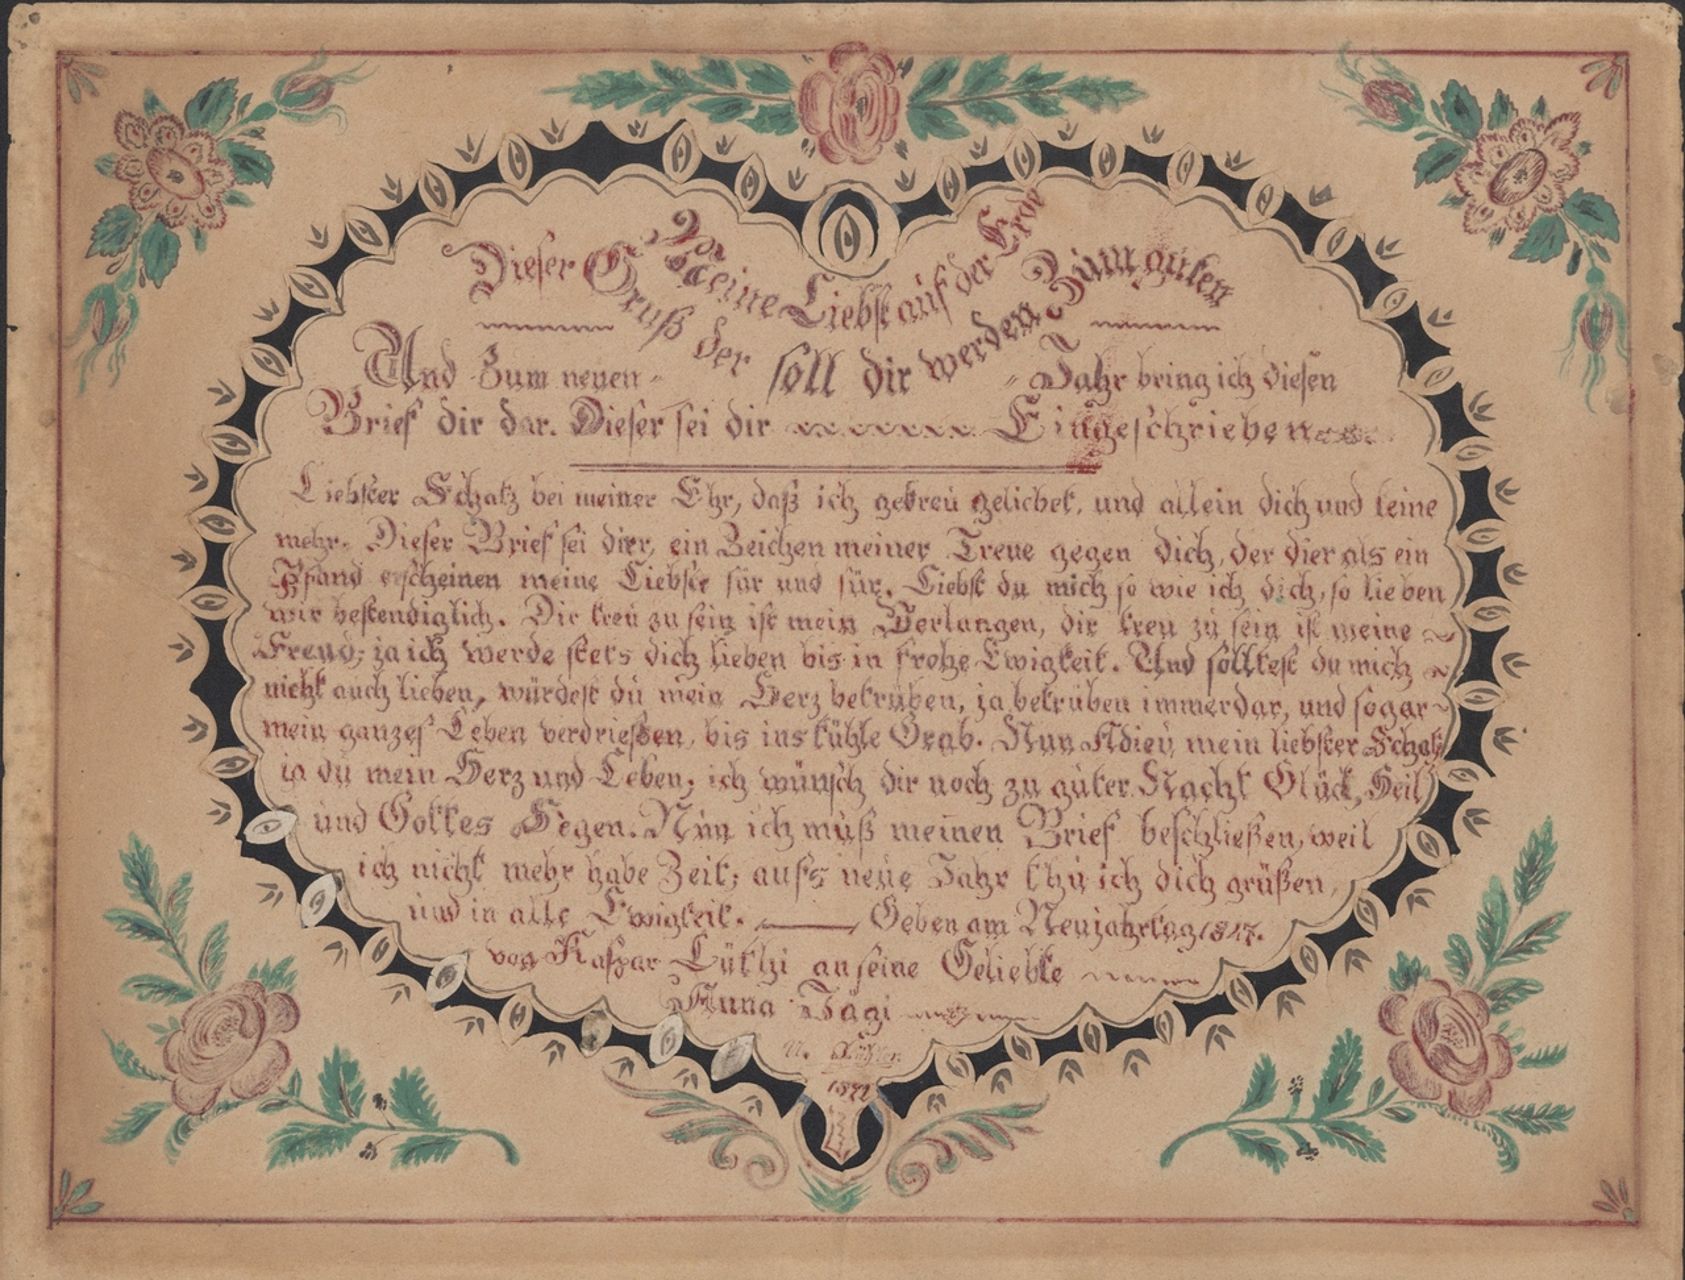 Dieser Gruß der soll dir werden Zum guten
Meine Liebst auf der Erde
Und Zum neuen Jahr bring ich diesen
Brief dir dar. Dieser sei dir Eingeschrieben
Liebster Schatz bei meiner Ehr, daß ich getreu gelichet, und allein dich und keine
mehr. Dieser Brief sei dier, ein Zeichen meiner Treue gegen dich, der dier als ein
Pfand erscheinen meine Liebste für und für. Liebst du mich so wie ich dich, so lieben
wir bestendiglich. Dir treu zu sein ist mein Verlangen, dir treu zu sein ist meine
Freud; ja ich werde stets dich lieben bis in frohe Ewigkeit. Und solltest du mich
nicht auch lieben, würdest du mein Herz betrüben, ja betrüben immerdar, und sogar
mein ganzes Leben verdrießen, bis ins kühle Grab. Nun Adieu mein liebster Schatz
ja du mein Herz und Leben; ich wünsch dir noch zu guter Nacht Glück, Heil
und Gottes Segen. Nun ich muß meinen Brief beschließen, weil
ich nicht mehr habe Zeit; aufs neue Jahr thu ich dich grüßen,
und in alle Ewigkeit. Geben am Neujahrtag 1847.
von Kaspar Lüthi an seine Geliebte
Anna Jägi